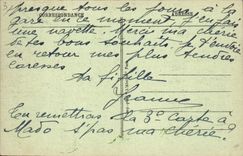 presque tous les jours à la
CORRESPONDANCE
gare en ce moment, j'en fais
une navette. Merci ma chérie
de tes bons souhaits, je t'envoie
en retour mes plus tendres
caresses
ta fifille
Jeanne
Tu remettras la 3e carte à
Mado s'pas ma chérie?